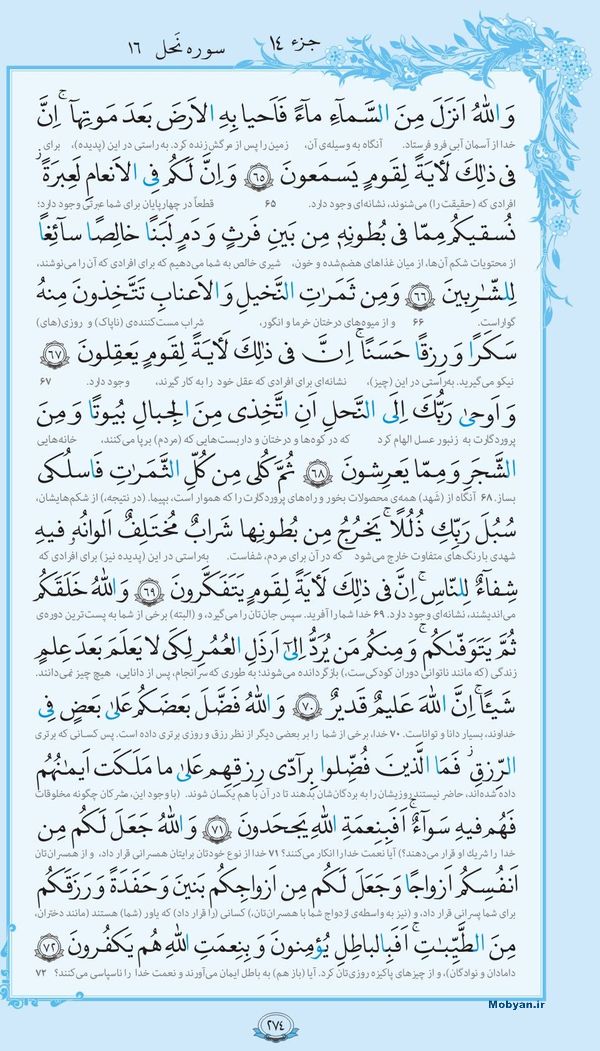 جزء ۱۴
سوره نَحل ۱۶
وَاللهُ اَنزَلَ مِنَ السَّمآءِ مآءً فَاَحیا بِهِ الاَرضَ بَعدَ مَوتِهآ ۚ اِنَّ
خدا از آسمان آبی فرو فرستاد. آنگاه به وسیله‌ی آن، زمین را پس از مرگش زنده کرد. به راستی در این (پدیده)، برای
فی ذٰلِكَ لَأیَةً لِقَومٍ یَسمَعونَ ﴿۶۵﴾ وَ اِنَّ لَكُم فِی الاَنعامِ لَعِبرَةً ۖ
افرادی که (حقیقت را) می‌شنوند، نشانه‌ای وجود دارد. ۶۵ قطعاً در چهارپایان برای شما عبرتی وجود دارد؛
نُسقیكُم مِمّا فی بُطونِهٖ مِن بَینِ فَرثٍ وَ دَمٍ لَبَنًا خالِصًا سآئِغًا
از محتویات شکم آن‌ها، از میان غذاهای هضم‌شده و خون، شیری خالص به شما می‌دهیم که برای افرادی که آن را می‌نوشند،
لِلشّٰرِبینَ ﴿۶۶﴾ وَ مِن ثَمَرٰتِ النَّخیلِ وَ الاَعنابِ تَتَّخِذونَ مِنهُ
گواراست. ۶۶ و از میوه‌های درختان خرما و انگور، شراب مست‌کننده‌ی (ناپاک) و روزی(های)
سَكَرًا وَ رِزقًا حَسَنًا ۚ اِنَّ فی ذٰلِكَ لَأیَةً لِقَومٍ یَعقِلونَ ﴿۶۷﴾
نیکو می‌گیرید. به‌راستی در این (چیز)، نشانه‌ای برای افرادی که عقل خود را به کار گیرند، وجود دارد. ۶۷
وَ اَوحیٰ رَبُّكَ اِلَی النَّحلِ اَنِ اتَّخِذی مِنَ الجِبالِ بُیوتًا وَ مِنَ
پروردگارت به زنبور عسل الهام کرد که در کوه‌ها و درختان و داربست‌هایی که (مردم) برپا می‌کنند، خانه‌هایی
الشَّجَرِ وَ مِمّا یَعرِشونَ ﴿۶۸﴾ ثُمَّ كُلی مِن كُلِّ الثَّمَرٰتِ فَاسلُكی
بساز. ۶۸ آنگاه از (شَهد) همه‌ی محصولات بخور و راه‌های پروردگارت را که هموار است، بپیما. (در نتیجه،) از شکم‌هایشان،
سُبُلَ رَبِّكِ ذُلُلًا ۚ یَخرُجُ مِن بُطونِها شَرابٌ مُختَلِفٌ اَلوانُهٗ فیهِ
شهدی با رنگ‌های متفاوت خارج می‌شود که در آن برای مردم، شفاست. به‌راستی در این (پدیده نیز) برای افرادی که
شِفآءٌ لِلنّاسِ ۗ اِنَّ فی ذٰلِكَ لَأیَةً لِقَومٍ یَتَفَكَّرونَ ﴿۶۹﴾ وَ اللهُ خَلَقَكُم
می‌اندیشند، نشانه‌ای وجود دارد. ۶۹ خدا شما را آفرید. سپس جان‌تان را می‌گیرد، و (البته) برخی از شما به پست‌ترین دوره‌ی
ثُمَّ یَتَوَفّٰىكُم ۚ وَ مِنكُم مَن یُرَدُّ اِلیٰٓ اَرذَلِ العُمُرِ لِكَی لا یَعلَمَ بَعدَ عِلمٍ
زندگی (که مانند ناتوانی دوران کودکی‌ست،) بازگردانده می‌شوند؛ به طوری که سرانجام، پس از دانایی، هیچ چیز نمی‌دانند.
شَیئًا ۚ اِنَّ اللهَ عَلیمٌ قَدیرٌ ﴿۷۰﴾ وَ اللهُ فَضَّلَ بَعضَكُم عَلیٰ بَعضٍ فِی
خداوند، بسیار دانا و تواناست. ۷۰ خدا، برخی از شما را بر بعضی دیگر از نظر رزق و روزی برتری داده است. پس کسانی که برتری
الرِّزقِ ۚ فَمَا الَّذینَ فُضِّلوا بِرآدّی رِزقِهِم عَلیٰ ما مَلَكَت اَیمٰنُهُم
داده شده‌اند، حاضر نیستند روزیشان را به بردگان‌شان بدهند تا در آن با هم یکسان شوند. (با وجود این، مشرکان چگونه مخلوقات
فَهُم فیهِ سَوآءٌ ۚ اَفَبِنِعمَةِ اللهِ یَجحَدونَ ﴿۷۱﴾ وَ اللهُ جَعَلَ لَكُم مِن
خدا را شریك او قرار می‌دهند؟) آیا نعمت خدا را انکار می‌کنند؟ ۷۱ خدا از نوع خودتان برایتان همسرانی قرار داد، و از همسران‌تان
اَنفُسِكُم اَزواجًا وَ جَعَلَ لَكُم مِن اَزواجِكُم بَنینَ وَ حَفَدَةً وَ رَزَقَكُم
برای شما پسرانی قرار داد، و (نیز به واسطه‌ی ازدواج شما با همسران‌تان،) کسانی (را قرار داد) که یاور (شما) هستند (مانند دختران،
مِنَ الطَّیِّبٰتِ ۚ اَفَبِالباطِلِ یُؤمِنونَ وَ بِنِعمَتِ اللهِ هُم یَكفُرونَ ﴿۷۲﴾
دامادان و نوادگان)، و از چیزهای پاکیزه روزی‌تان کرد. آیا (باز هم) به باطل ایمان می‌آورند و نعمت خدا را ناسپاسی می‌کنند؟ ۷۲
Mobyan.ir
۲۷۴